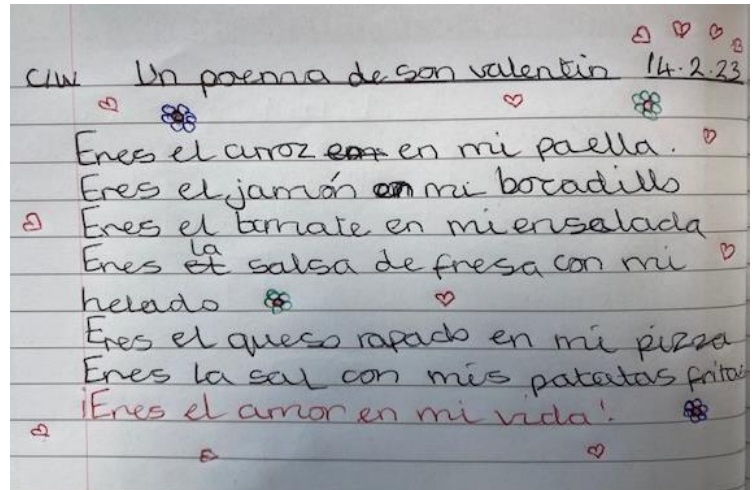 C/W Un poema de san valentin 14.2.23
Eres el arroz en mi paella.
Eres el jamón en mi bocadillo
Eres el tomate en mi ensalada
Eres la salsa de fresa con mi
helado
Eres el queso rapado en mi pizza
Eres la sal con mis patatas fritas
¡Eres el amor en mi vida!